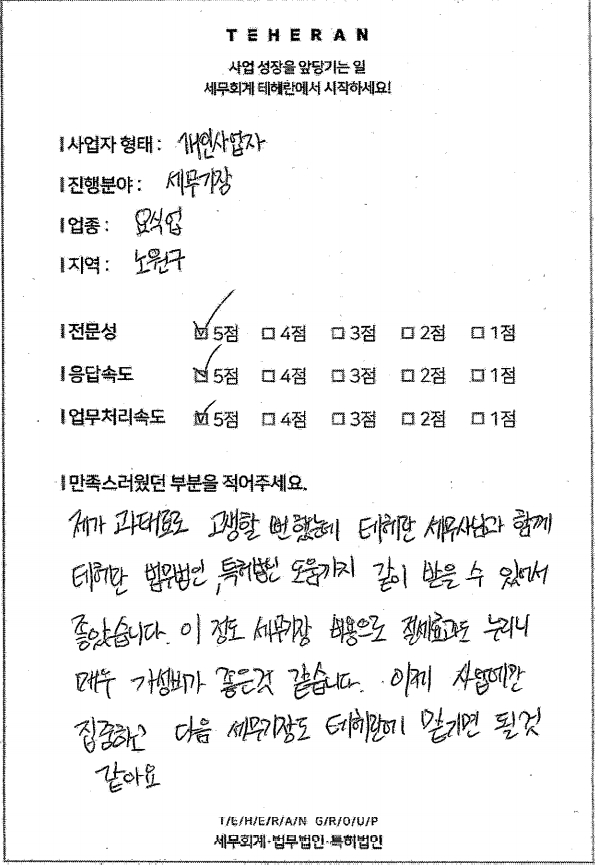 TEHERAN
사업 성장을 앞당기는 일
세무회계 테헤란에서 시작하세요!
사업자 형태 : 개인사업자
진행분야 : 세무기장
업종 : 요식업
지역 : 노원구
전문성 ☑ 5점 ☐ 4점 ☐ 3점 ☐ 2점 ☐ 1점
응답속도 ☑ 5점 ☐ 4점 ☐ 3점 ☐ 2점 ☐ 1점
업무처리속도 ☑ 5점 ☐ 4점 ☐ 3점 ☐ 2점 ☐ 1점
만족스러웠던 부분을 적어주세요.
제가 과태료로 고생할 뻔했는데 테헤란 세무사님과 함께
테헤란 법무법인, 특허법인 도움까지 같이 받을 수 있어서
좋았습니다. 이 정도 세무기장 비용으로 절세효과도 누리니
매우 가성비가 좋은것 같습니다. 이제 사업에만
집중하고 다음 세무기장도 테헤란에 맡기면 될것
같아요
T/E/H/E/R/A/N G/R/O/U/P
세무회계·법무법인·특허법인